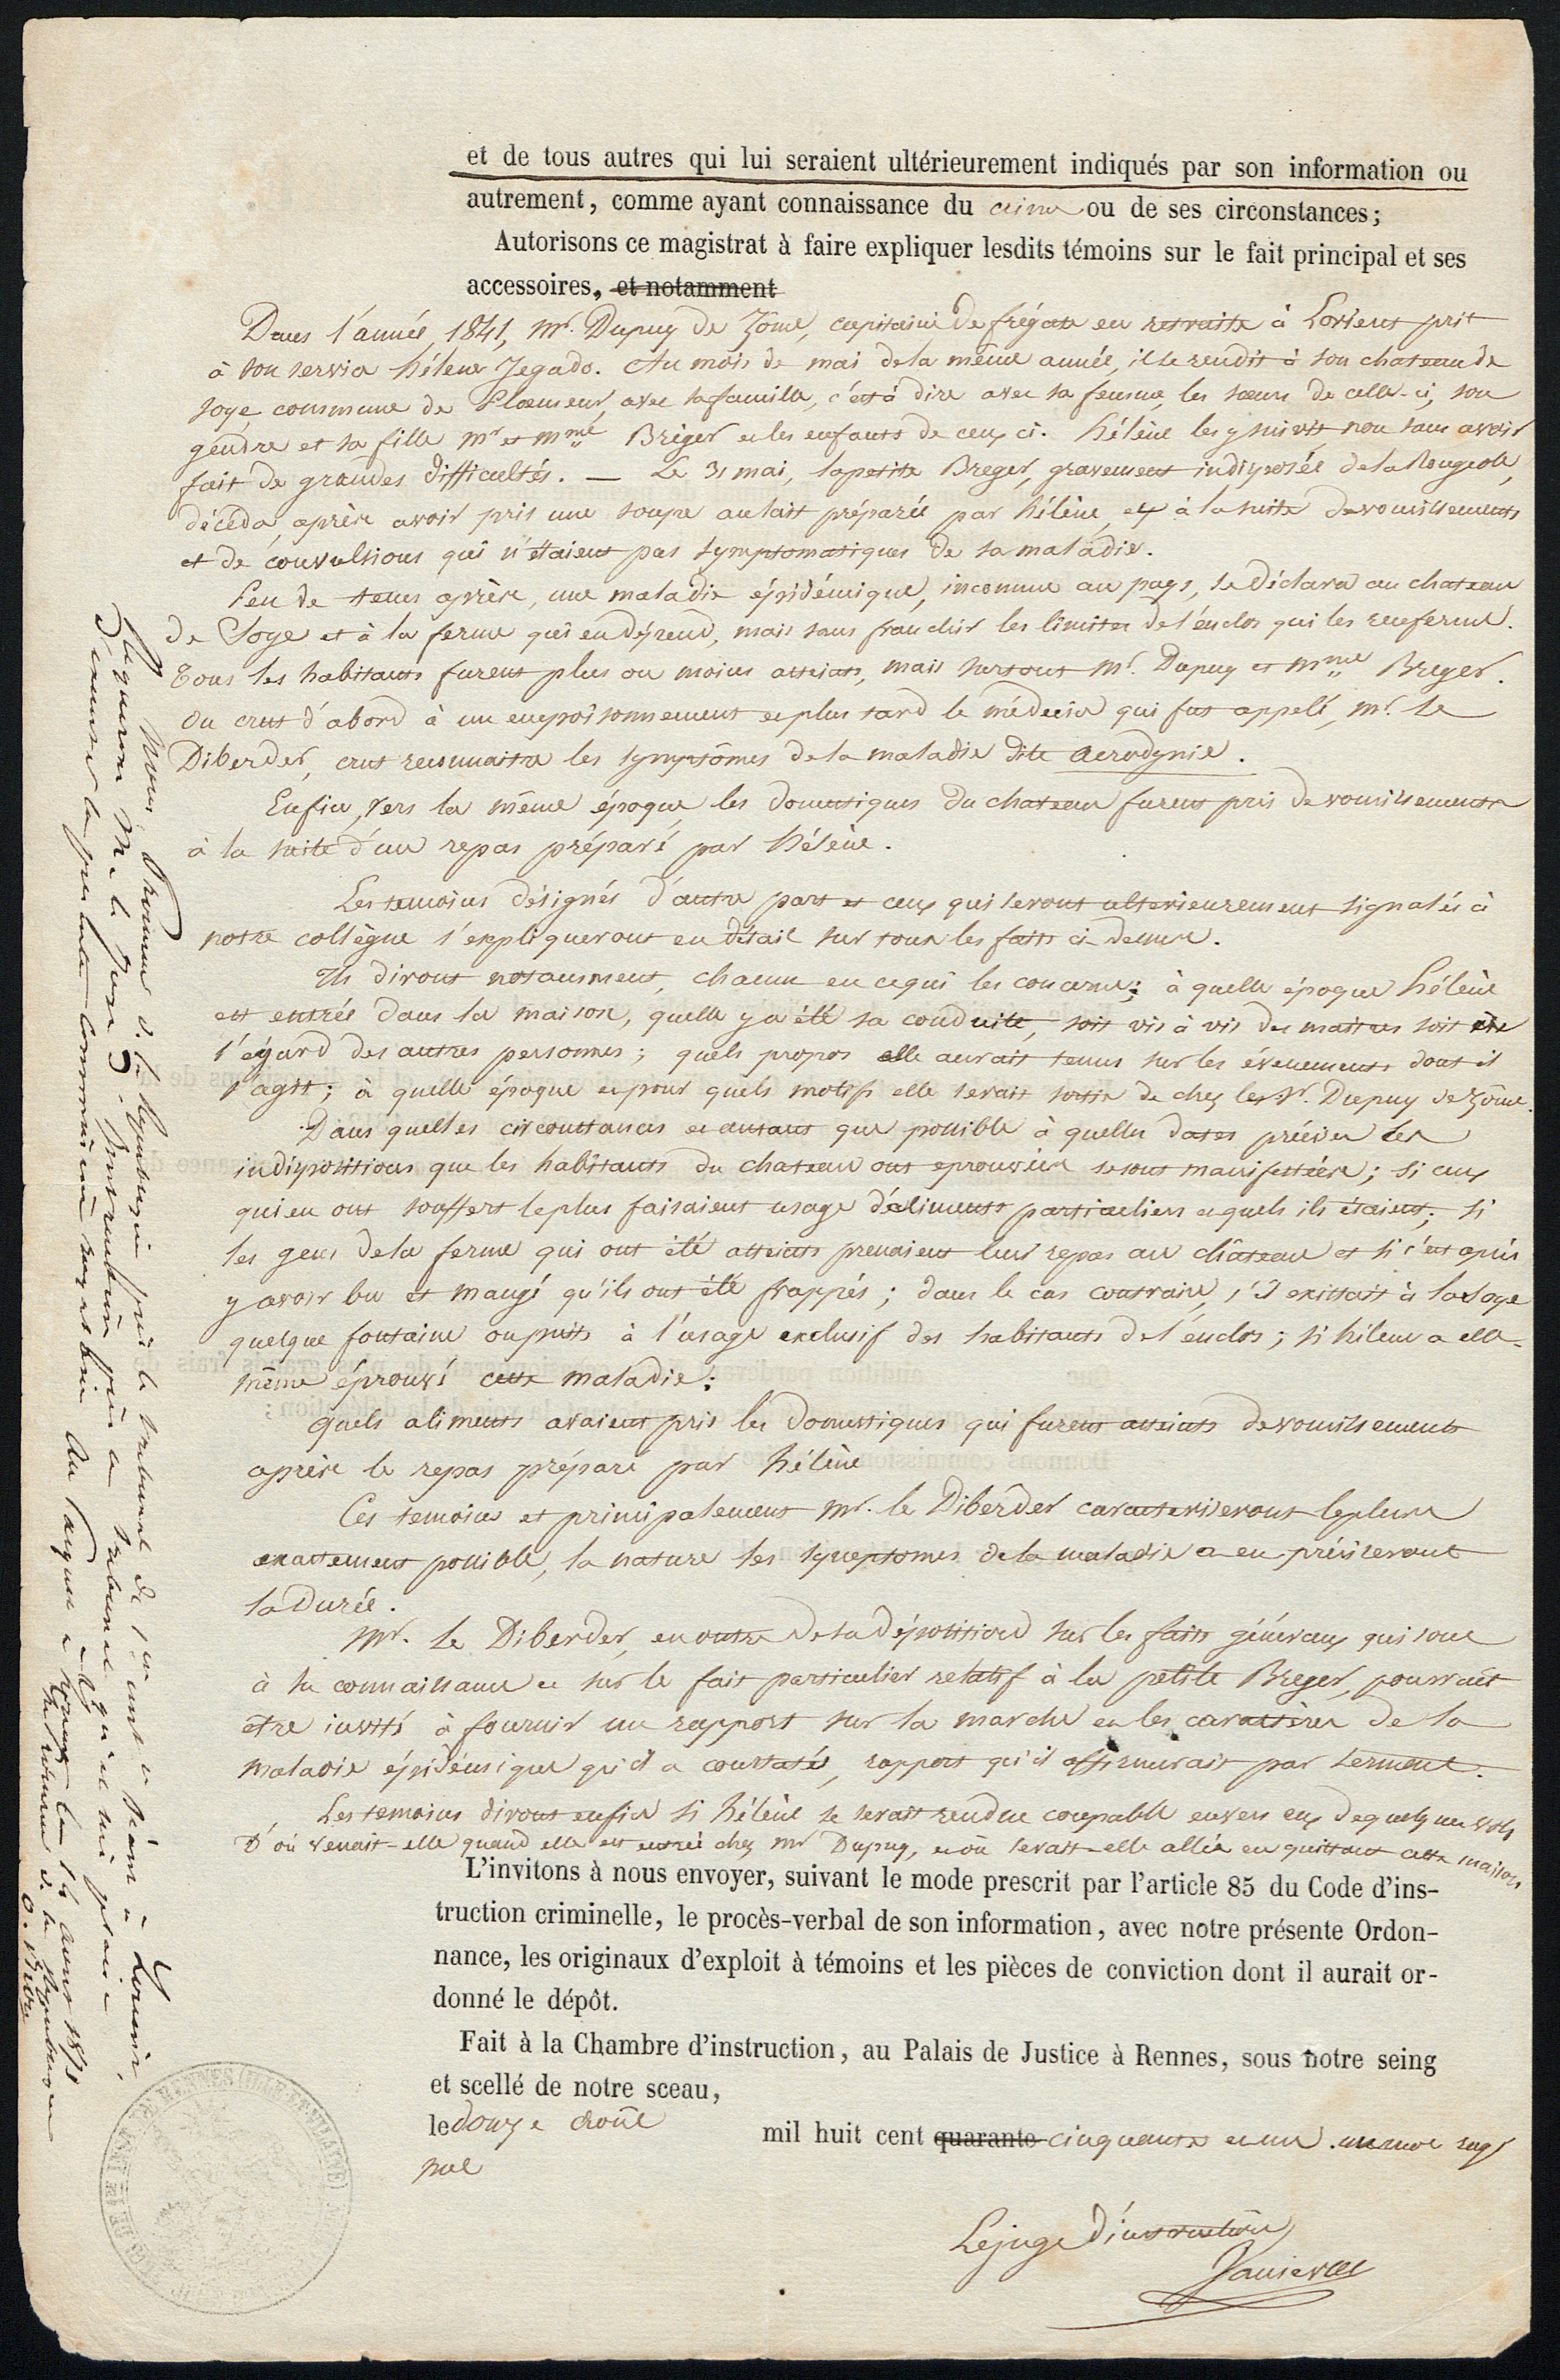 et de tous autres qui lui seraient ultérieurement indiqués par son information ou
autrement, comme ayant connaissance du crime ou de ses circonstances;
Autorisons ce magistrat à faire expliquer lesdits témoins sur le fait principal et ses
accessoires, et notamment
Dans l'année 1841, Mr. Dupuy de Zôme, capitaine de frégate en retraite à Lorient prit
à son service hélène Jegado. Au mois de mai de la même année, il se rendit à son chateau de
soye commune de Ploemeur, avec sa famille, c'est à dire avec sa femme, les soeurs de celle-ci, son
gendre et sa fille Mr et Mme Bréger et les enfants de ceux ci. hélène les y suivit, non sans avoir
fait de grandes difficultés. — Le 31 mai, la petite Breger, gravement indisposée de la Rougeole,
décéda après avoir pris une soupe au lait préparée par hélène, et à la suite de vomissements
et de convulsions qui n'étaient pas symptomatiques de sa maladie.
Peu de tems après, une maladie épidémique, inconnue au pays, se déclara au chateau
de Soye et à la ferme qui en dépend, mais sans franchir les limites de l'enclos qui les renferme.
Tous les habitants furent plus ou moins atteints, mais surtout Mr. Dupuy et Mme Breger.
On crut d'abord à un empoisonnement et plus tard le médecin qui fut appelé, Mr. Le
Diberder, crut reconnaitre les symptômes de la maladie dite acrodynie.
Enfin, vers la même époque, les domestiques du chateau furent pris de vomissements
à la suite d'un repas préparé par hélène.
Les temoins désignés d'autre part et ceux qui seront ulterieurement signalés à
notre collègue s'expliqueront en détail sur tous les faits ci-dessus.
Ils diront notamment, chacun en ce qui les concerne; à quelle époque hélène
est entrée dans la maison, quelle y a été sa conduite, soit vis à vis des maitres soit à
l'égard des autres personnes; quels propos elle aurait tenus sur les évenements dont il
s'agit; à quelle époque et pour quels motifs elle serait sortie de chez le Sr. Dupuy de Zôme.
Dans quelles circonstances et autant que possible à quelles dates précises les
indispositions que les habitants du chateau ont eprouvées se sont manifestées; si ceux
qui en ont souffert le plus faisaient usage d'aliments particuliers et quels ils étaient; si
les gens de la ferme qui ont été atteints prenaient leurs repas au château et si c'est après
y avoir bu et mangé qu'ils ont été frappés; dans le cas contraire, s'il existait à la soye
quelque fontaine ou puits à l'usage exclusif des habitants de l'enclos; si hélène a elle-
même éprouvé cette maladie;
quels aliments avaient pris les domestiques qui furent atteints de vomissements
après le repas préparé par hélène
Ces temoins et principalement Mr. le Diberder caracteriseront le plus
exactement possible, la nature les symptomes de la maladie et en préciseront
la durée.
Mr. Le Diberder, en outre de sa déposition sur les faits généraux qui sont
à sa connaissance et sur le fait particulier relatif à la petite Breger, pourrait
être invité à fournir un rapport sur la marche et les caractères de la
maladie épidémique qu'il a constatée, rapport qu'il affirmerait par serment.
Les temoins diront enfin si hélène se serait rendue coupable envers eux de quelques vols
D'où venait-elle quand elle est entrée chez Mr Dupuy, et où serait-elle allée en quittant cette maison
L'invitons à nous envoyer, suivant le mode prescrit par l'article 85 du Code d'ins-
truction criminelle, le procès-verbal de son information, avec notre présente Ordon-
nance, les originaux d'exploit à témoins et les pièces de conviction dont il aurait or-
donné le dépôt.
Fait à la Chambre d'instruction, au Palais de Justice à Rennes, sous notre seing
et scellé de notre sceau,
le douze août mil huit cent quarante cinquante et un. un mot rayé
nul
Le juge d'instruction
Nous, Procureur de la République près le tribunal de 1ère inst. séant à Lorient,
Requérons Mr le Juge d'instruction près ce tribunal qu'il lui plaise
exécuter la présente Commission
Au Parquet à Lorient le 14 août 1851
Le Procureur de la République